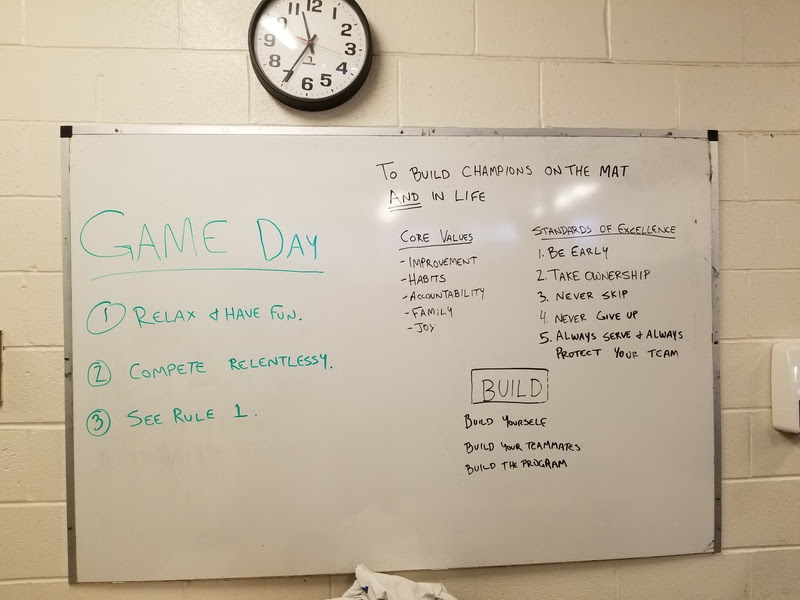 12
11
1
10
2
9
3
8
4
7
6
5
GAME DAY
1 RELAX & HAVE FUN.
2 COMPETE RELENTLESSY.
3 SEE RULE 1.
TO BUILD CHAMPIONS ON THE MAT
AND IN LIFE
CORE VALUES
- IMPROVEMENT
- HABITS
- ACCOUNTABILITY
- FAMILY
- JOY
STANDARDS OF EXCELLENCE
1. BE EARLY
2. TAKE OWNERSHIP
3. NEVER SKIP
4. NEVER GIVE UP
5. ALWAYS SERVE & ALWAYS
PROTECT YOUR TEAM
BUILD
BUILD YOURSELF
BUILD YOUR TEAMMATES
BUILD THE PROGRAM